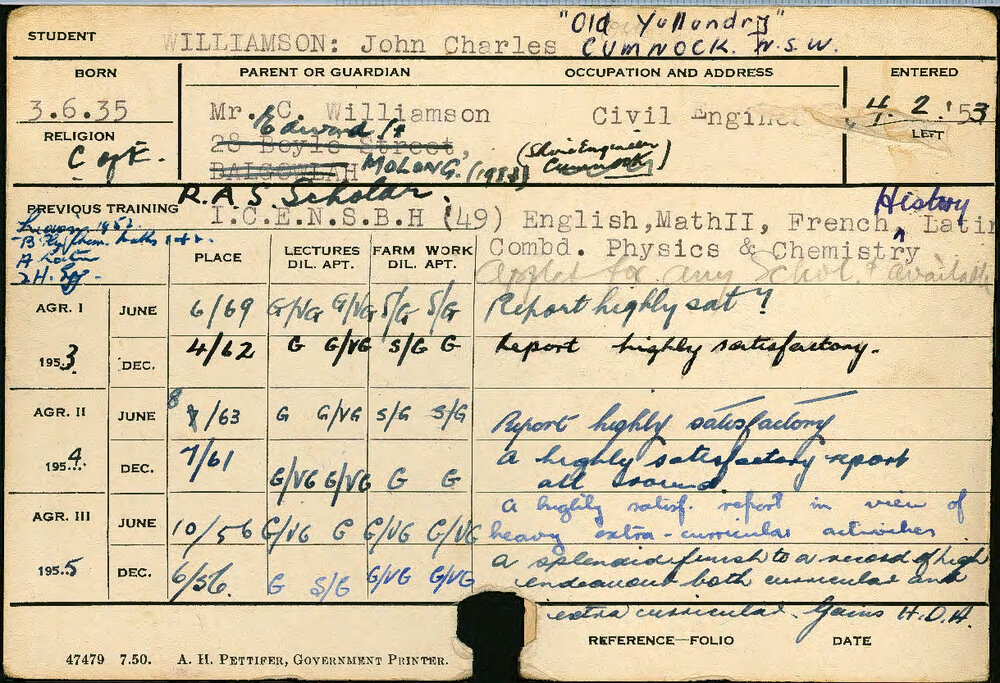 "Old Yullundry"
STUDENT WILLIAMSON: John Charles CUMNOCK. N.S.W.
BORN PARENT OR GUARDIAN OCCUPATION AND ADDRESS ENTERED
3.6.35 Mr. C. Williamson Civil Engineer 4.2.'53
Edward St
RELIGION 28 Boyle Street, (Shire Engineer LEFT
C of E. BALGOWLAH MOLONG. Cumnock)
R.A.S. Scholar. History
PREVIOUS TRAINING I.C.E.N.S.B.H (49) English,MathII, French, Latin
Combd. Physics & Chemistry
B. Maths
A Latin
2H. Eng.
Applet for any Schol. available
PLACE LECTURES DIL. APT. FARM WORK DIL. APT.
AGR. I JUNE 6/69 G/VG G/VG S/G S/G Report highly sat y
1953 DEC. 4/62 G G/VG S/G G Report highly satisfactory.
AGR. II JUNE 8/63 G G/VG S/G S/G Report highly satisfactory
1954 DEC. 7/61 G/VG G/VG G G A highly satisfactory report
all round.
AGR. III JUNE 10/56 G/VG G G/VG G/VG A highly satisf. report in view of
heavy extra-curricular activities
1955 DEC. 6/56. G S/G G/VG G/VG A splendid finish to a record of high
endeavour both curricular and
extra curricular. Gains H.D.A.
REFERENCE—FOLIO DATE
47479 7.50. A. H. PETTIFER, GOVERNMENT PRINTER.